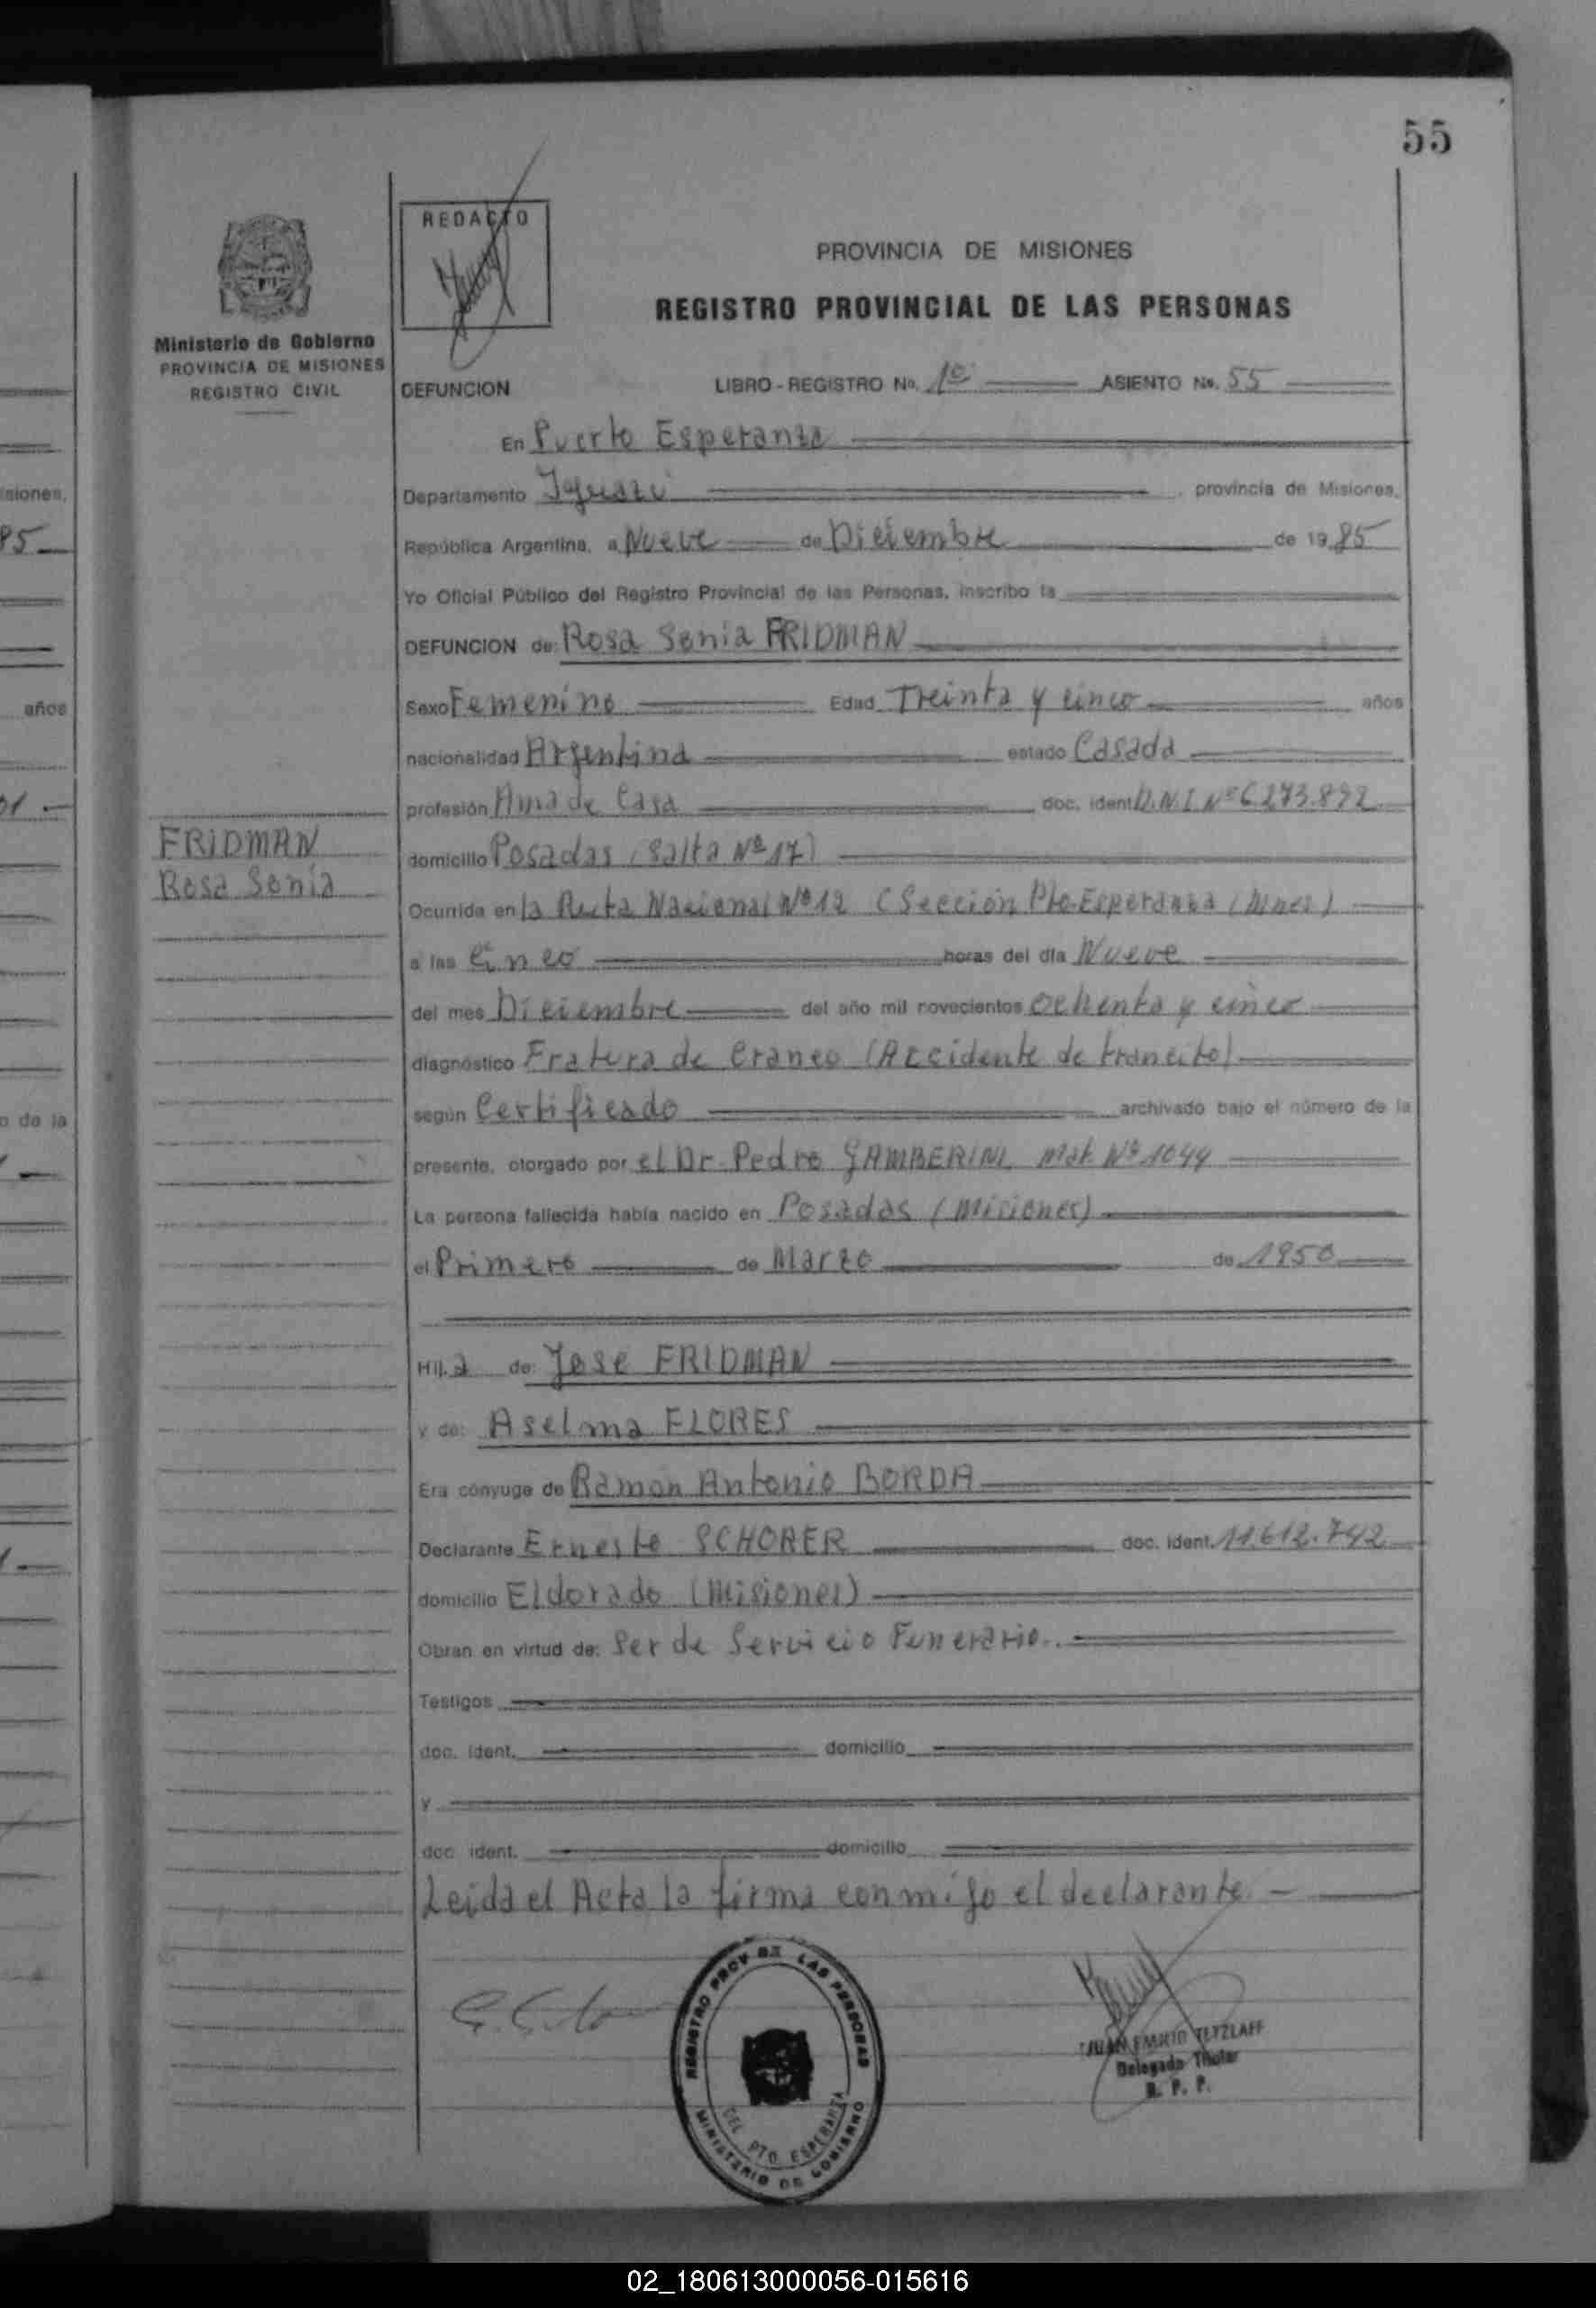 55
REDACTO
PROVINCIA DE MISIONES
REGISTRO PROVINCIAL DE LAS PERSONAS
Ministerio de Gobierno
PROVINCIA DE MISIONES
REGISTRO CIVIL
DEFUNCION LIBRO - REGISTRO No. 1º ASIENTO No. 55
En Puerto Esperanza
Departamento Iguazú , provincia de Misiones,
República Argentina, a Nueve de Diciembre de 1985
Yo Oficial Público del Registro Provincial de las Personas, inscribo la
DEFUNCION de: Rosa Sonia FRIDMAN
Sexo Femenino Edad Treinta y cinco años
nacionalidad Argentina estado Casada
profesión Ama de Casa doc. ident. D.N.I. Nº 6.273.892
FRIDMAN
Rosa Sonia
domicilio Posadas (Salta Nº 17)
Ocurrida en la Ruta Nacional Nº 12 (Sección Pto Esperanza (Mnes)
a las Cinco horas del día Nueve
del mes Diciembre del año mil novecientos ochenta y cinco
diagnóstico Fratura de Craneo (Accidente de trancito)
según Certificado archivado bajo el número de la
presente, otorgado por el Dr. Pedro GAMBERINI Mat. Nº 1044
La persona fallecida había nacido en Posadas (Misiones)
el Primero de Marzo de 1950
Hij a de: Jose FRIDMAN
y de: Aselma FLORES
Era cónyuge de Ramon Antonio BORDA
Declarante Ernesto SCHORER doc. ident. 11.612.742
domicilio Eldorado (Misiones)
Obran en virtud de: Ser de Servicio Funerario.
Testigos
doc. ident. domicilio
y
doc. ident. domicilio
Leida el Acta la firma conmigo el declarante. -
REGISTRO PROV DE LAS PERSONAS
DEL PTO ESPERANZA
MINISTERIO DE GOBIERNO
JUAN EMILIO TETZLAFF
Delegado Titular
R. P. P.
isiones,
85
años
01
o de la
02_180613000056-015616